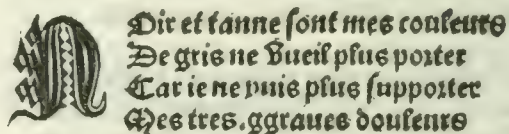 Noir et tanne sont mes couleurs
De gris ne vueil plus porter
Car ie ne puis plus supporter
Mes tres.ggraues douleurs